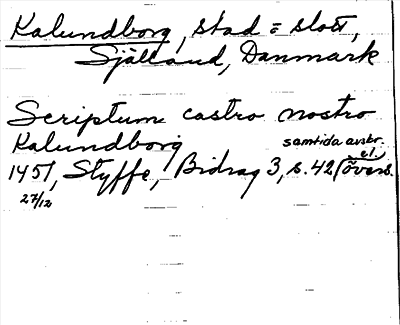 Kalundborg, stad = slott,
Själland, Danmark
Scriptum castro nostro
Kalundborg samtida avskr.
1451, Styffe, Bidrag 3, s. 42 (el. övers.
27/12